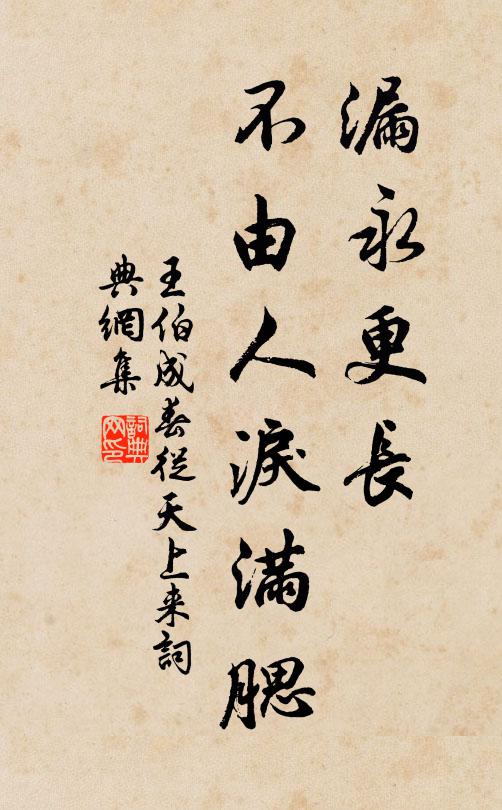 漏永更長
不由人淚滿腮
王伯成春從天上来詞
典網集
詞典
网印